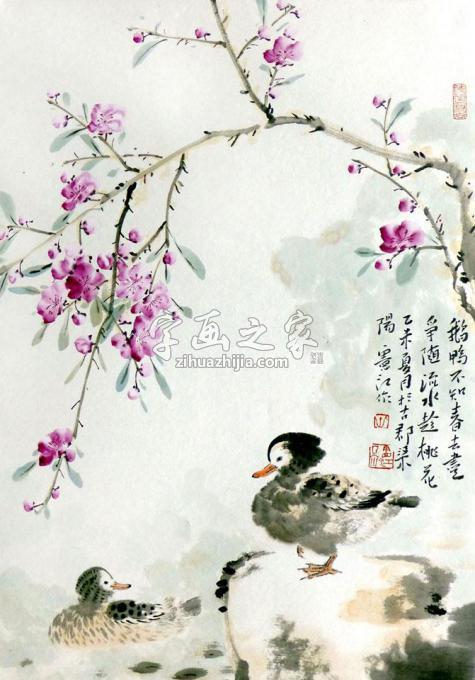 鹅鸭不知春去尽
争随流水趁桃花
乙未夏月于古郡梁
阳宪江作
字画之家
zihuazhijia.com